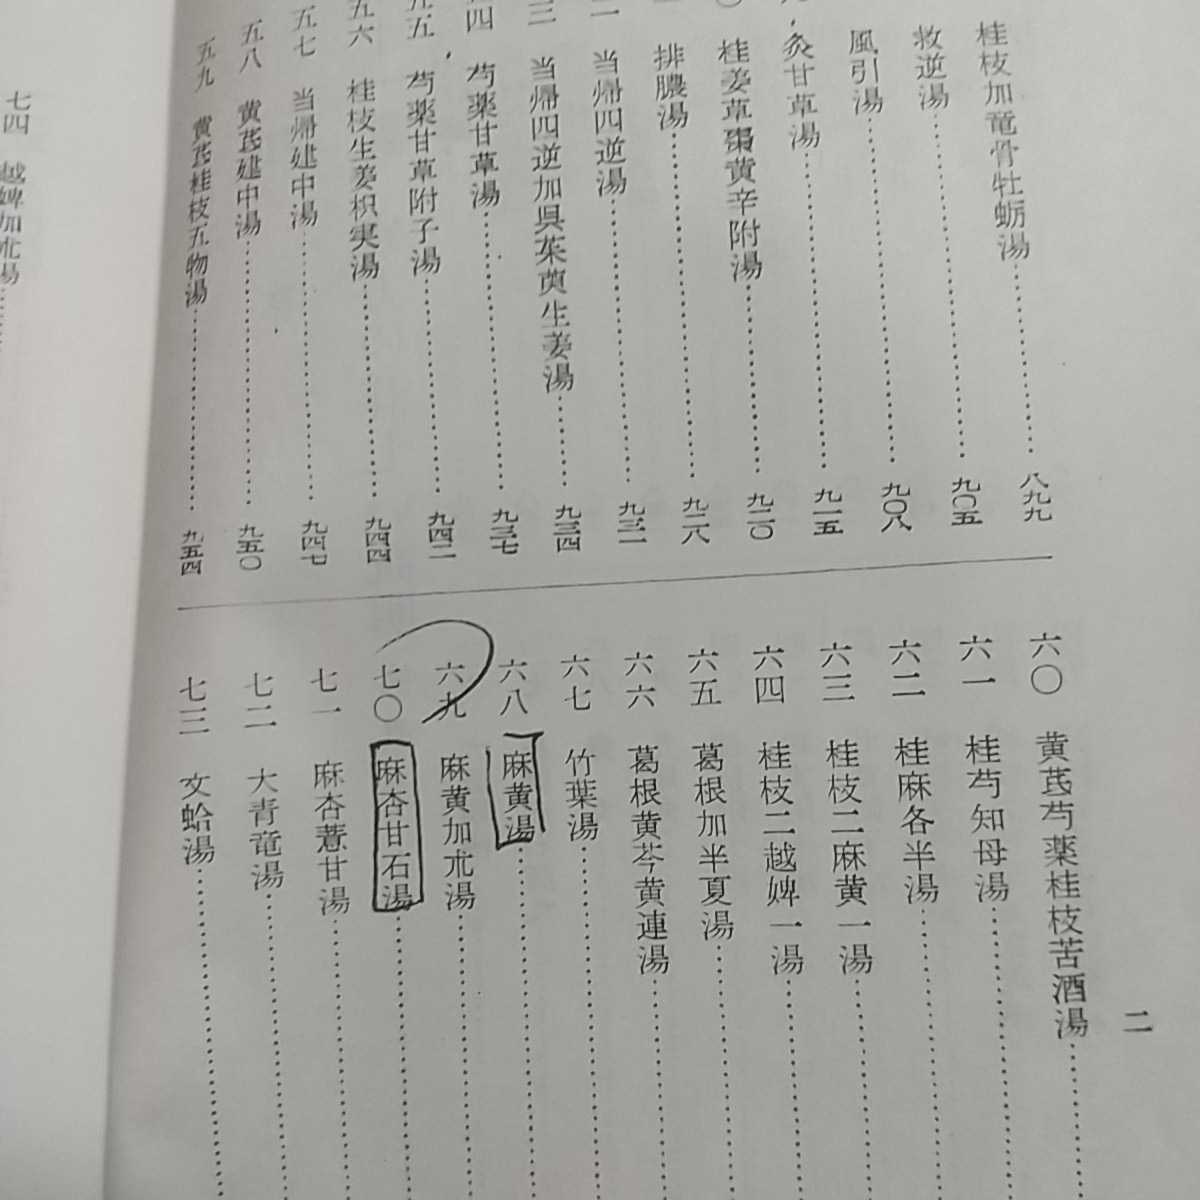 桂枝加竜骨牡蛎湯……八九九
救逆湯……九〇五
風引湯……九〇八
炙甘草湯……九一五
桂姜草棗黄辛附湯……九二〇
排膿湯……九二八
当帰四逆湯……九三一
三 当帰四逆加呉茱萸生姜湯……九三四
四 芍薬甘草湯……九三七
五五 芍薬甘草附子湯……九四二
五六 桂枝生姜枳実湯……九四四
五七 当帰建中湯……九四七
五八 黄芪建中湯……九五〇
五九 黄芪桂枝五物湯……九五四
六〇 黄芪芍薬桂枝苦酒湯……
六一 桂芍知母湯……
六二 桂麻各半湯……
六三 桂枝二麻黄一湯……
六四 桂枝二越婢一湯……
六五 葛根加半夏湯……
六六 葛根黄芩黄連湯……
六七 竹葉湯……
六八 麻黄湯……
六九 麻黄加朮湯……
七〇 麻杏甘石湯……
七一 麻杏薏甘湯……
七二 大青竜湯……
七三 文蛤湯……
二
七四 越婢加朮湯……